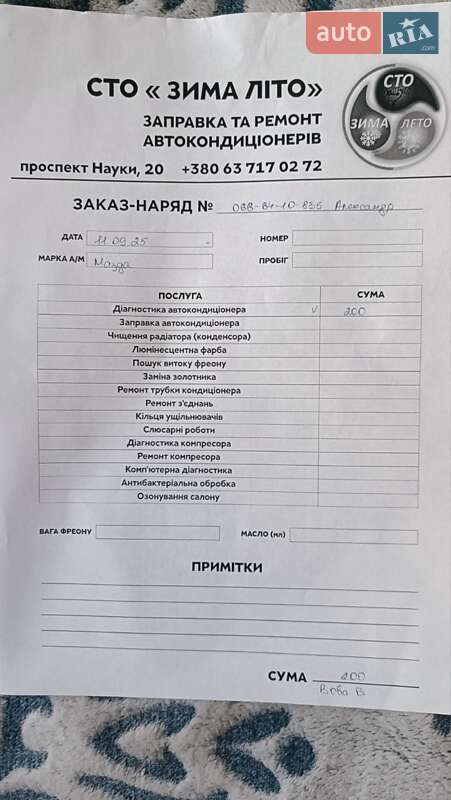 auto RIA.com
СТО « ЗИМА ЛІТО»
ЗАПРАВКА ТА РЕМОНТ
АВТОКОНДИЦІОНЕРІВ
СТО
ЗИМА ЛЕТО
проспект Науки, 20 +380 63 717 02 72
ЗАКАЗ-НАРЯД № 068-84-10-835 Александр
ДАТА 11.09.25 НОМЕР
МАРКА А/М Мазда ПРОБІГ
ПОСЛУГА СУМА
Діагностика автокондиціонера V 200
Заправка автокондиціонера
Чищення радіатора (конденсора)
Люмінесцентна фарба
Пошук витоку фреону
Заміна золотника
Ремонт трубки кондиціонера
Ремонт з'єднань
Кільця ущільнювачів
Слюсарні роботи
Діагностика компресора
Ремонт компресора
Комп'ютерна діагностика
Антибактеріальна обробка
Озонування салону
ВАГА ФРЕОНУ МАСЛО (мл)
ПРИМІТКИ
СУМА 200
Вова В